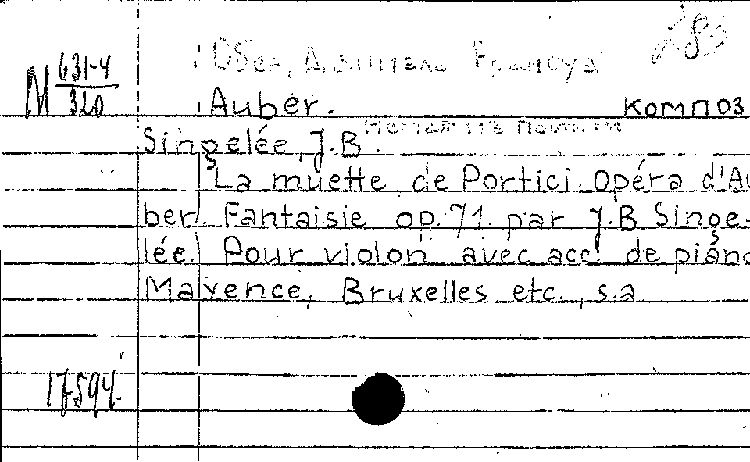 Обер, Даниель Франсуа
M 631-4/320
Auber. композ
Singelée, J.B.
La muette de Portici. Opéra d'Au
ber. Fantaisie op. 71. par J.B. Singe-
lée. Pour violon avec acc. de piano
Mayence, Bruxelles etc., s.a
17594.